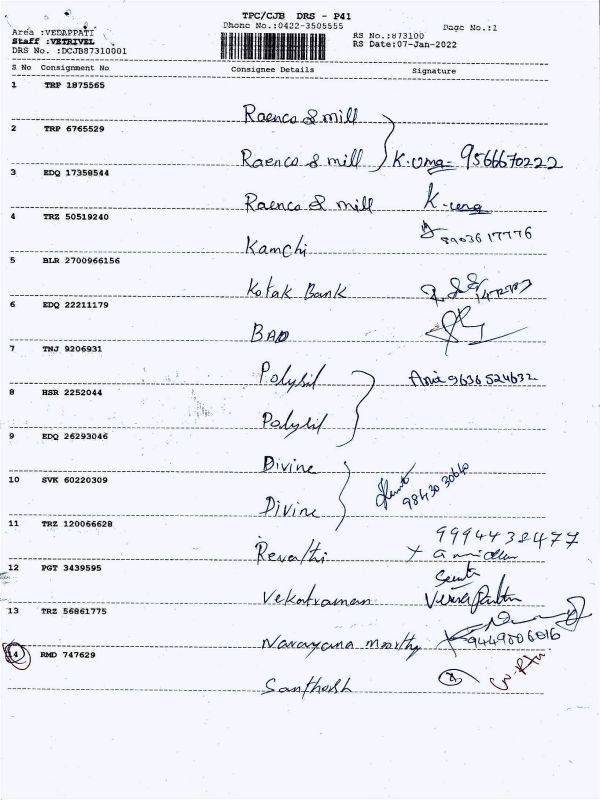 TPC/CJB DRS - P41
Phone No.:0422-3505555
Page No.:1
Area :VEDAPPATI
Staff :VETRIVEL
DRS No. :DCJB87310001
RS No.:873100
RS Date:07-Jan-2022
S No Consignment No Consignee Details Signature
1 TRP 1875565
Raenco & mill
2 TRP 6765529
Raenco & mill K. uma 9566670222
3 EDQ 17358544
Raenco & mill K. uma
4 TRZ 50519240
Kamchi 8903617776
5 BLR 2700966156
Kotak Bank
6 EDQ 22211179
BAD
7 TNJ 9206931
Polysil 9636524632
8 HSR 2252044
Polysil
9 EDQ 26293046
Divine
10 SVK 60220309
Divine 98430 30640
11 TRZ 120066628
9994432477
Revathi
12 PGT 3439595
Vekatraman
13 TRZ 56861775
Narayana moorthy 9449806016
14 RMD 747629
Santhosh